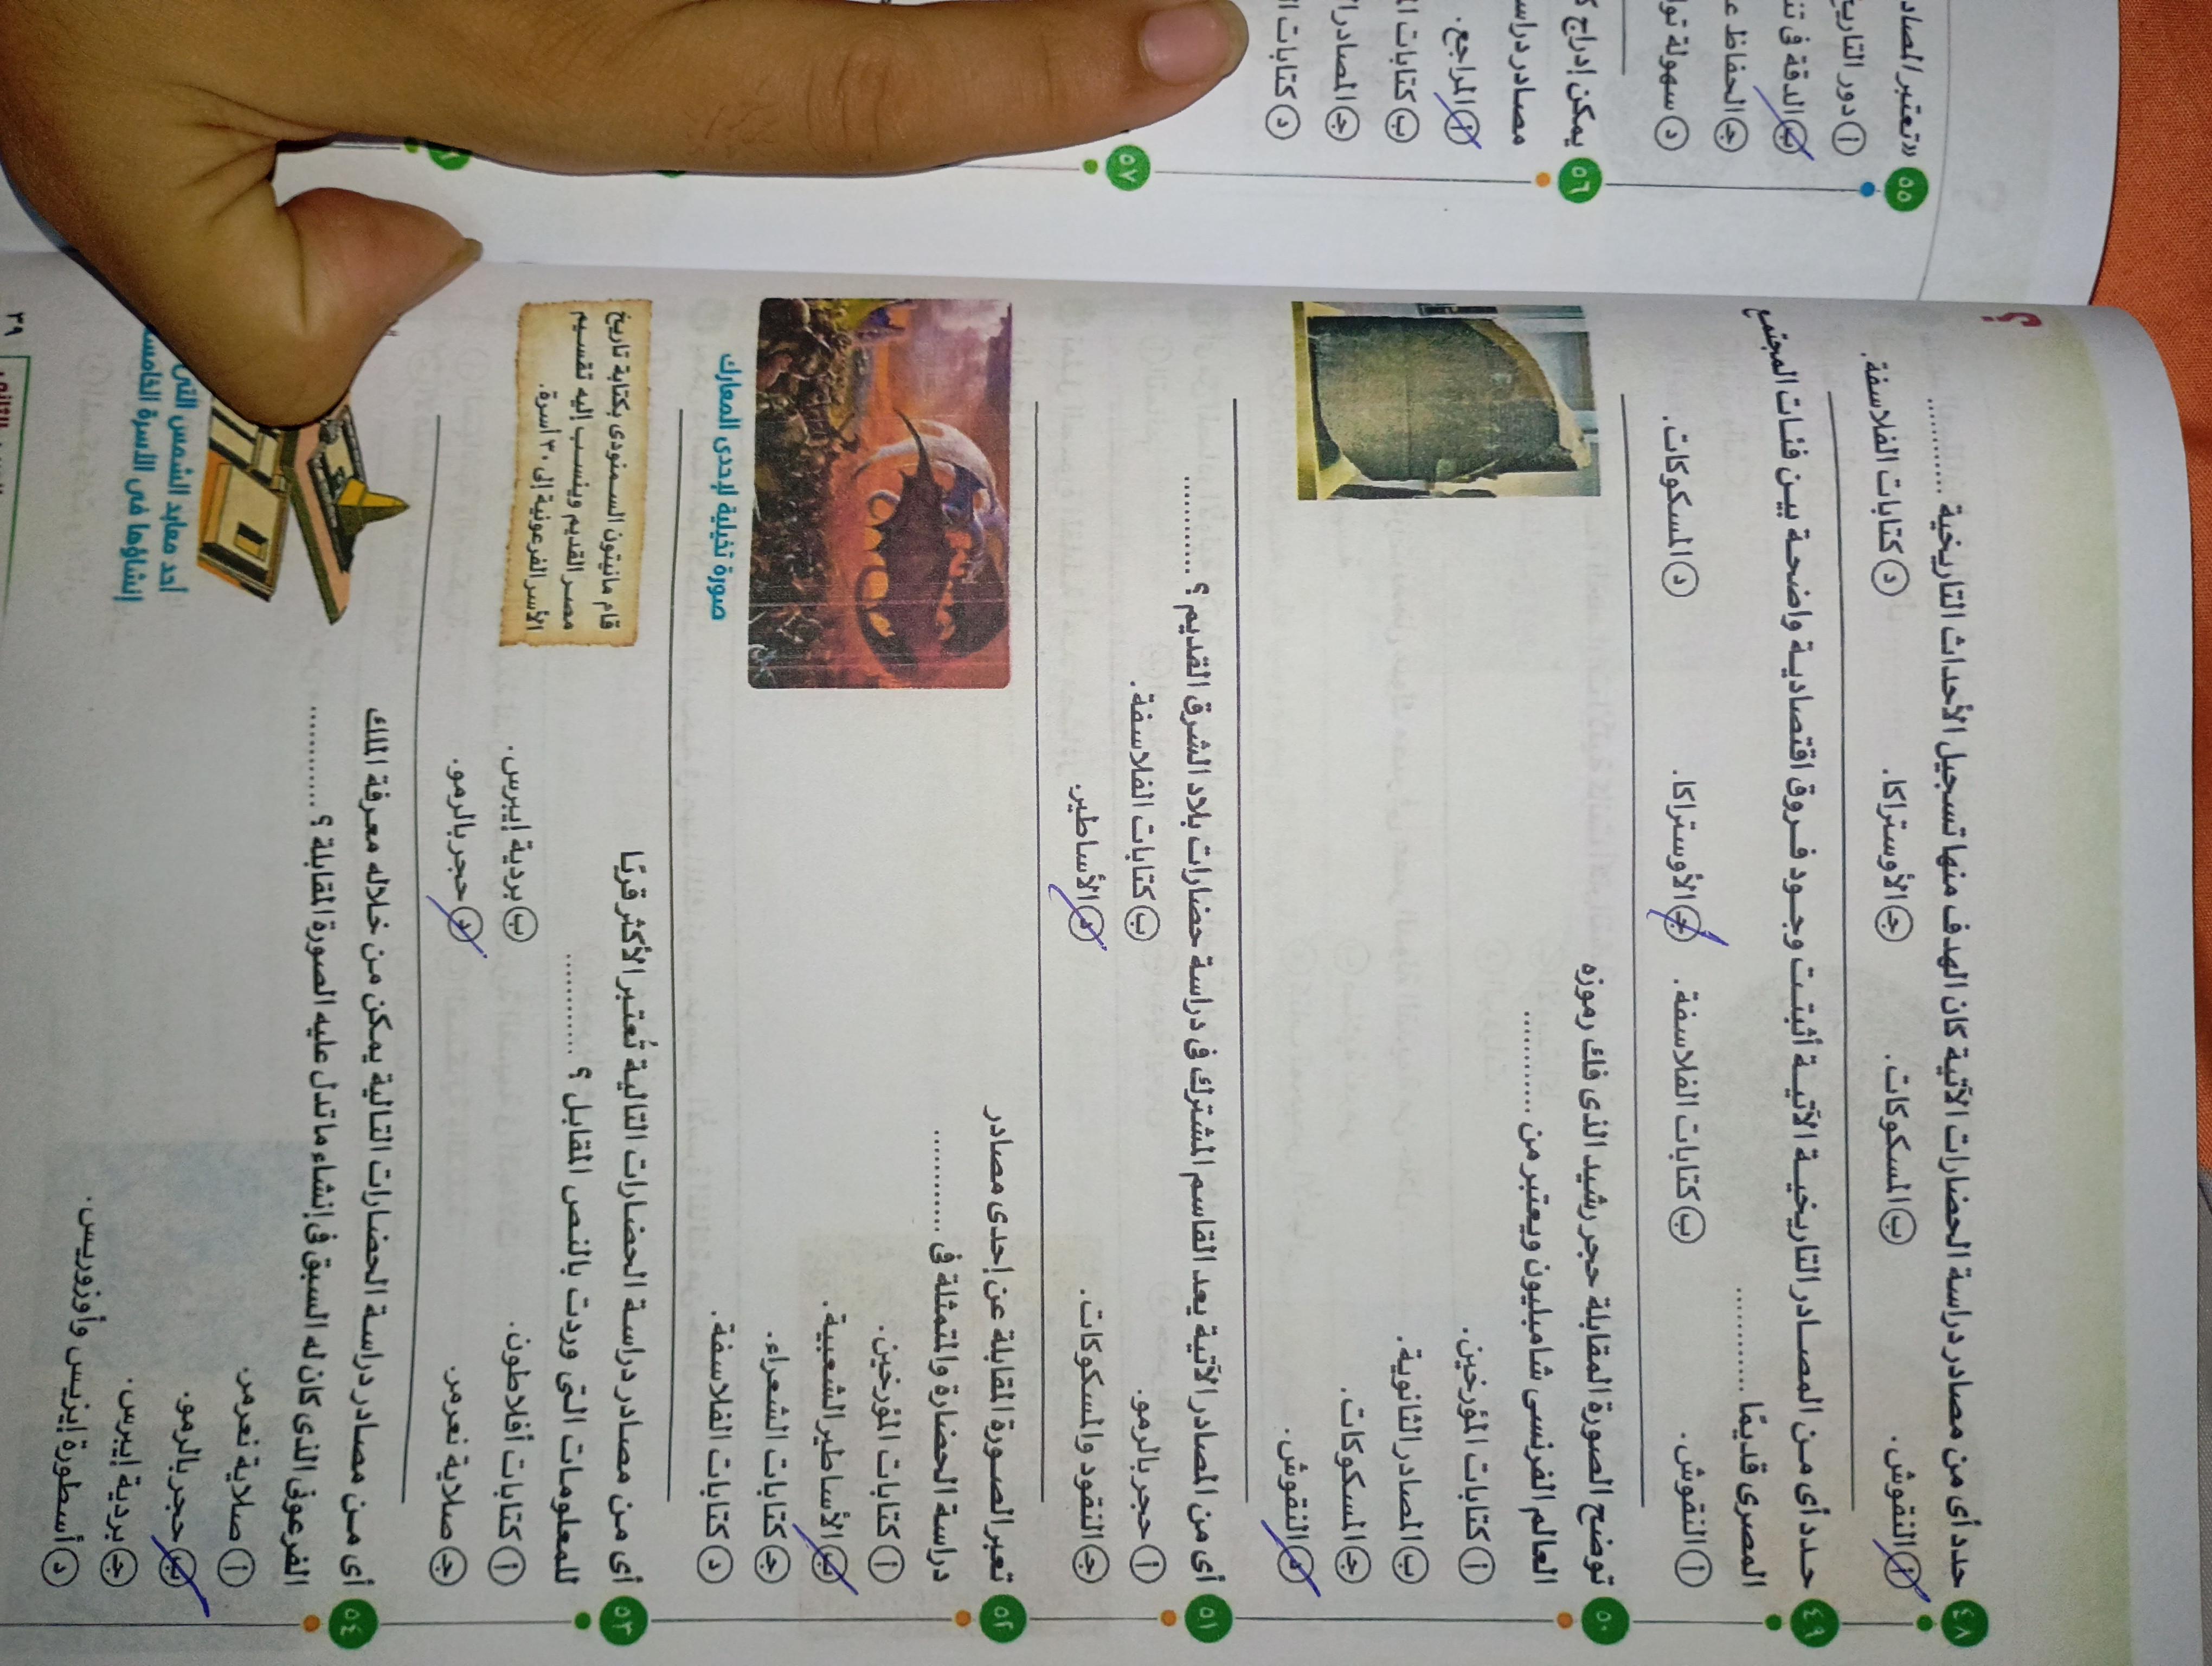 ٤٨ حدد أى من مصادر دراسة الحضارات الآتية كان الهدف منها تسجيل الأحداث التاريخية ............
أ النقوش. ب المسكوكات. ج الأوستراكا. د كتابات الفلاسفة.
٤٩ حدد أى من المصادر التاريخية الآتية أثبتت وجود فروق اقتصادية واضحة بين فئات المجتمع
المصرى قديمًا ............
أ النقوش. ب كتابات الفلاسفة. ج الأوستراكا. د المسكوكات.
٥٠ توضح الصورة المقابلة حجر رشيد الذى فك رموزه
العالم الفرنسى شامبليون ويعتبر من ............
أ كتابات المؤرخين.
ب المصادر الثانوية.
ج المسكوكات.
د النقوش.
٥١ أى من المصادر الآتية يعد القاسم المشترك فى دراسة حضارات بلاد الشرق القديم ؟ ............
أ حجر بالرمو. ب كتابات الفلاسفة.
ج النقود والمسكوكات. د الأساطير.
٥٢ تعبر الصورة المقابلة عن إحدى مصادر
دراسة الحضارة والمتمثلة فى ............
أ كتابات المؤرخين.
ب الأساطير الشعبية.
ج كتابات الشعراء.
د كتابات الفلاسفة.
صورة تخيلية لإحدى المعارك
٥٣ أى من مصادر دراسة الحضارات التالية تُعتبر الأكثر قربًا
للمعلومات التى وردت بالنص المقابل ؟ ............
أ كتابات أفلاطون. ب بردية إيبرس.
ج صلاية نعرمر. د حجر بالرمو.
قام مانيتون السمنودى بكتابة تاريخ
مصر القديم وينسب إليه تقسيم
الأسر الفرعونية إلى ٣٠ أسرة.
٥٤ أى من مصادر دراسة الحضارات التالية يمكن من خلاله معرفة الملك
الفرعونى الذى كان له السبق فى إنشاء ما تدل عليه الصورة المقابلة ؟ ............
أ صلاية نعرمر.
ب حجر بالرمو.
ج بردية إيبرس.
د أسطورة إيزيس وأوزوريس.
أحد معابد الشمس التى
إنشاؤها فى الأسرة الخامسة
٣٩
٥٥ «تعتبر المصاد
أ دور التاريخ
ب الدقة فى
ج الحفاظ
د سهولة
٥٦ يمكن إدراج
مصادر دراسة
أ المراجع.
ب كتابات
ج المصادر
د كتابات
٥٧